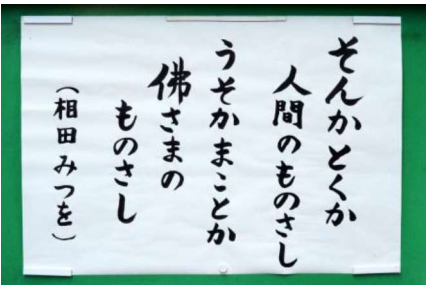 そんかとくか
人間のものさし
うそかまことか
佛さまの
ものさし
（相田みつを）